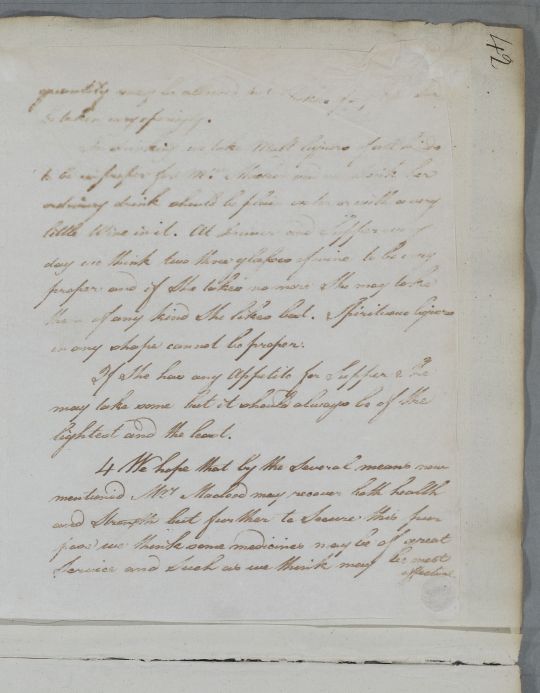 42
quantity may be allowed but
be taken very sparingly.
In drinking we take Malt liquors of all kinds
to be improper for Mrs Macleod and we think her
ordinary drink should be plain water or with a very
little Wine in it. At dinner and Supper every
day we think two three glasses of wine to be very
proper and if She takes no more She may take
them of any kind She likes best. Spirituous liquors
in any shape cannot be proper.
If She has any Appetite for Supper She
may take some but it should always be of the
lightest and the least.
4 We hope that by the Several means now
mentioned Mrs Macleod may recover both health
and Strength but further to Secure this pur
pose we think some medicines may be of great
Service and Such as we think may be most
effectual